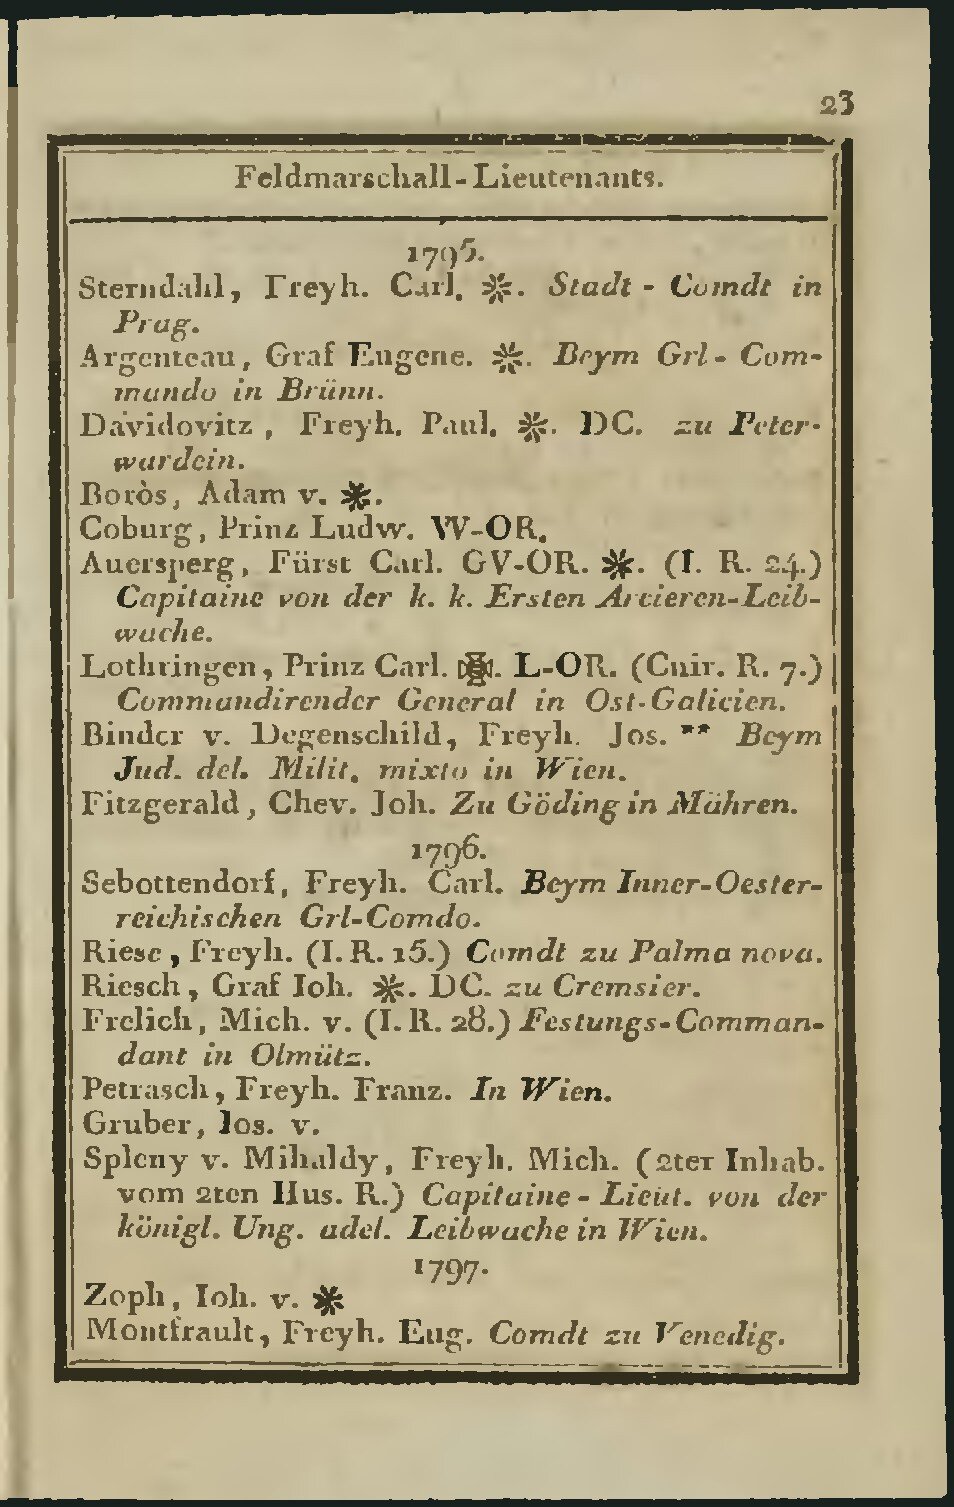 23
Feldmarschall-Lieutenants.
1795.
Sterndahl, Freyh. Carl. ✻. Stadt - Comdt in
Prag.
Argenteau, Graf Eugene. ✻. Beym Grl- Com-
mando in Brünn.
Davidovitz, Freyh. Paul. ✻. DC. zu Peter-
wardein.
Boròs, Adam v. ✻.
Coburg, Prinz Ludw. W-OR.
Auersperg, Fürst Carl. GV-OR. ✻. (I. R. 24.)
Capitaine von der k. k. Ersten Arcieren-Leib-
wache.
Lothringen, Prinz Carl. ✠. L-OR. (Cuir. R. 7.)
Commandirender General in Ost-Galicien.
Binder v. Degenschild, Freyh. Jos. ** Beym
Jud. del. Milit. mixto in Wien.
Fitzgerald, Chev. Joh. Zu Göding in Mähren.
1796.
Sebottendorf, Freyh. Carl. Beym Inner-Oester-
reichischen Grl-Comdo.
Riese, Freyh. (I. R. 15.) Comdt zu Palma nova.
Riesch, Graf Ioh. ✻. DC. zu Cremsier.
Frelich, Mich. v. (I. R. 28.) Festungs-Comman-
dant in Olmütz.
Petrasch, Freyh. Franz. In Wien.
Gruber, Ios. v.
Spleny v. Mihaldy, Freyh. Mich. (2ter Inhab.
vom 2ten Hus. R.) Capitaine - Lieut. von der
königl. Ung. adel. Leibwache in Wien.
1797.
Zoph, Ioh. v. ✻
Montfrault, Freyh. Eug. Comdt zu Venedig.